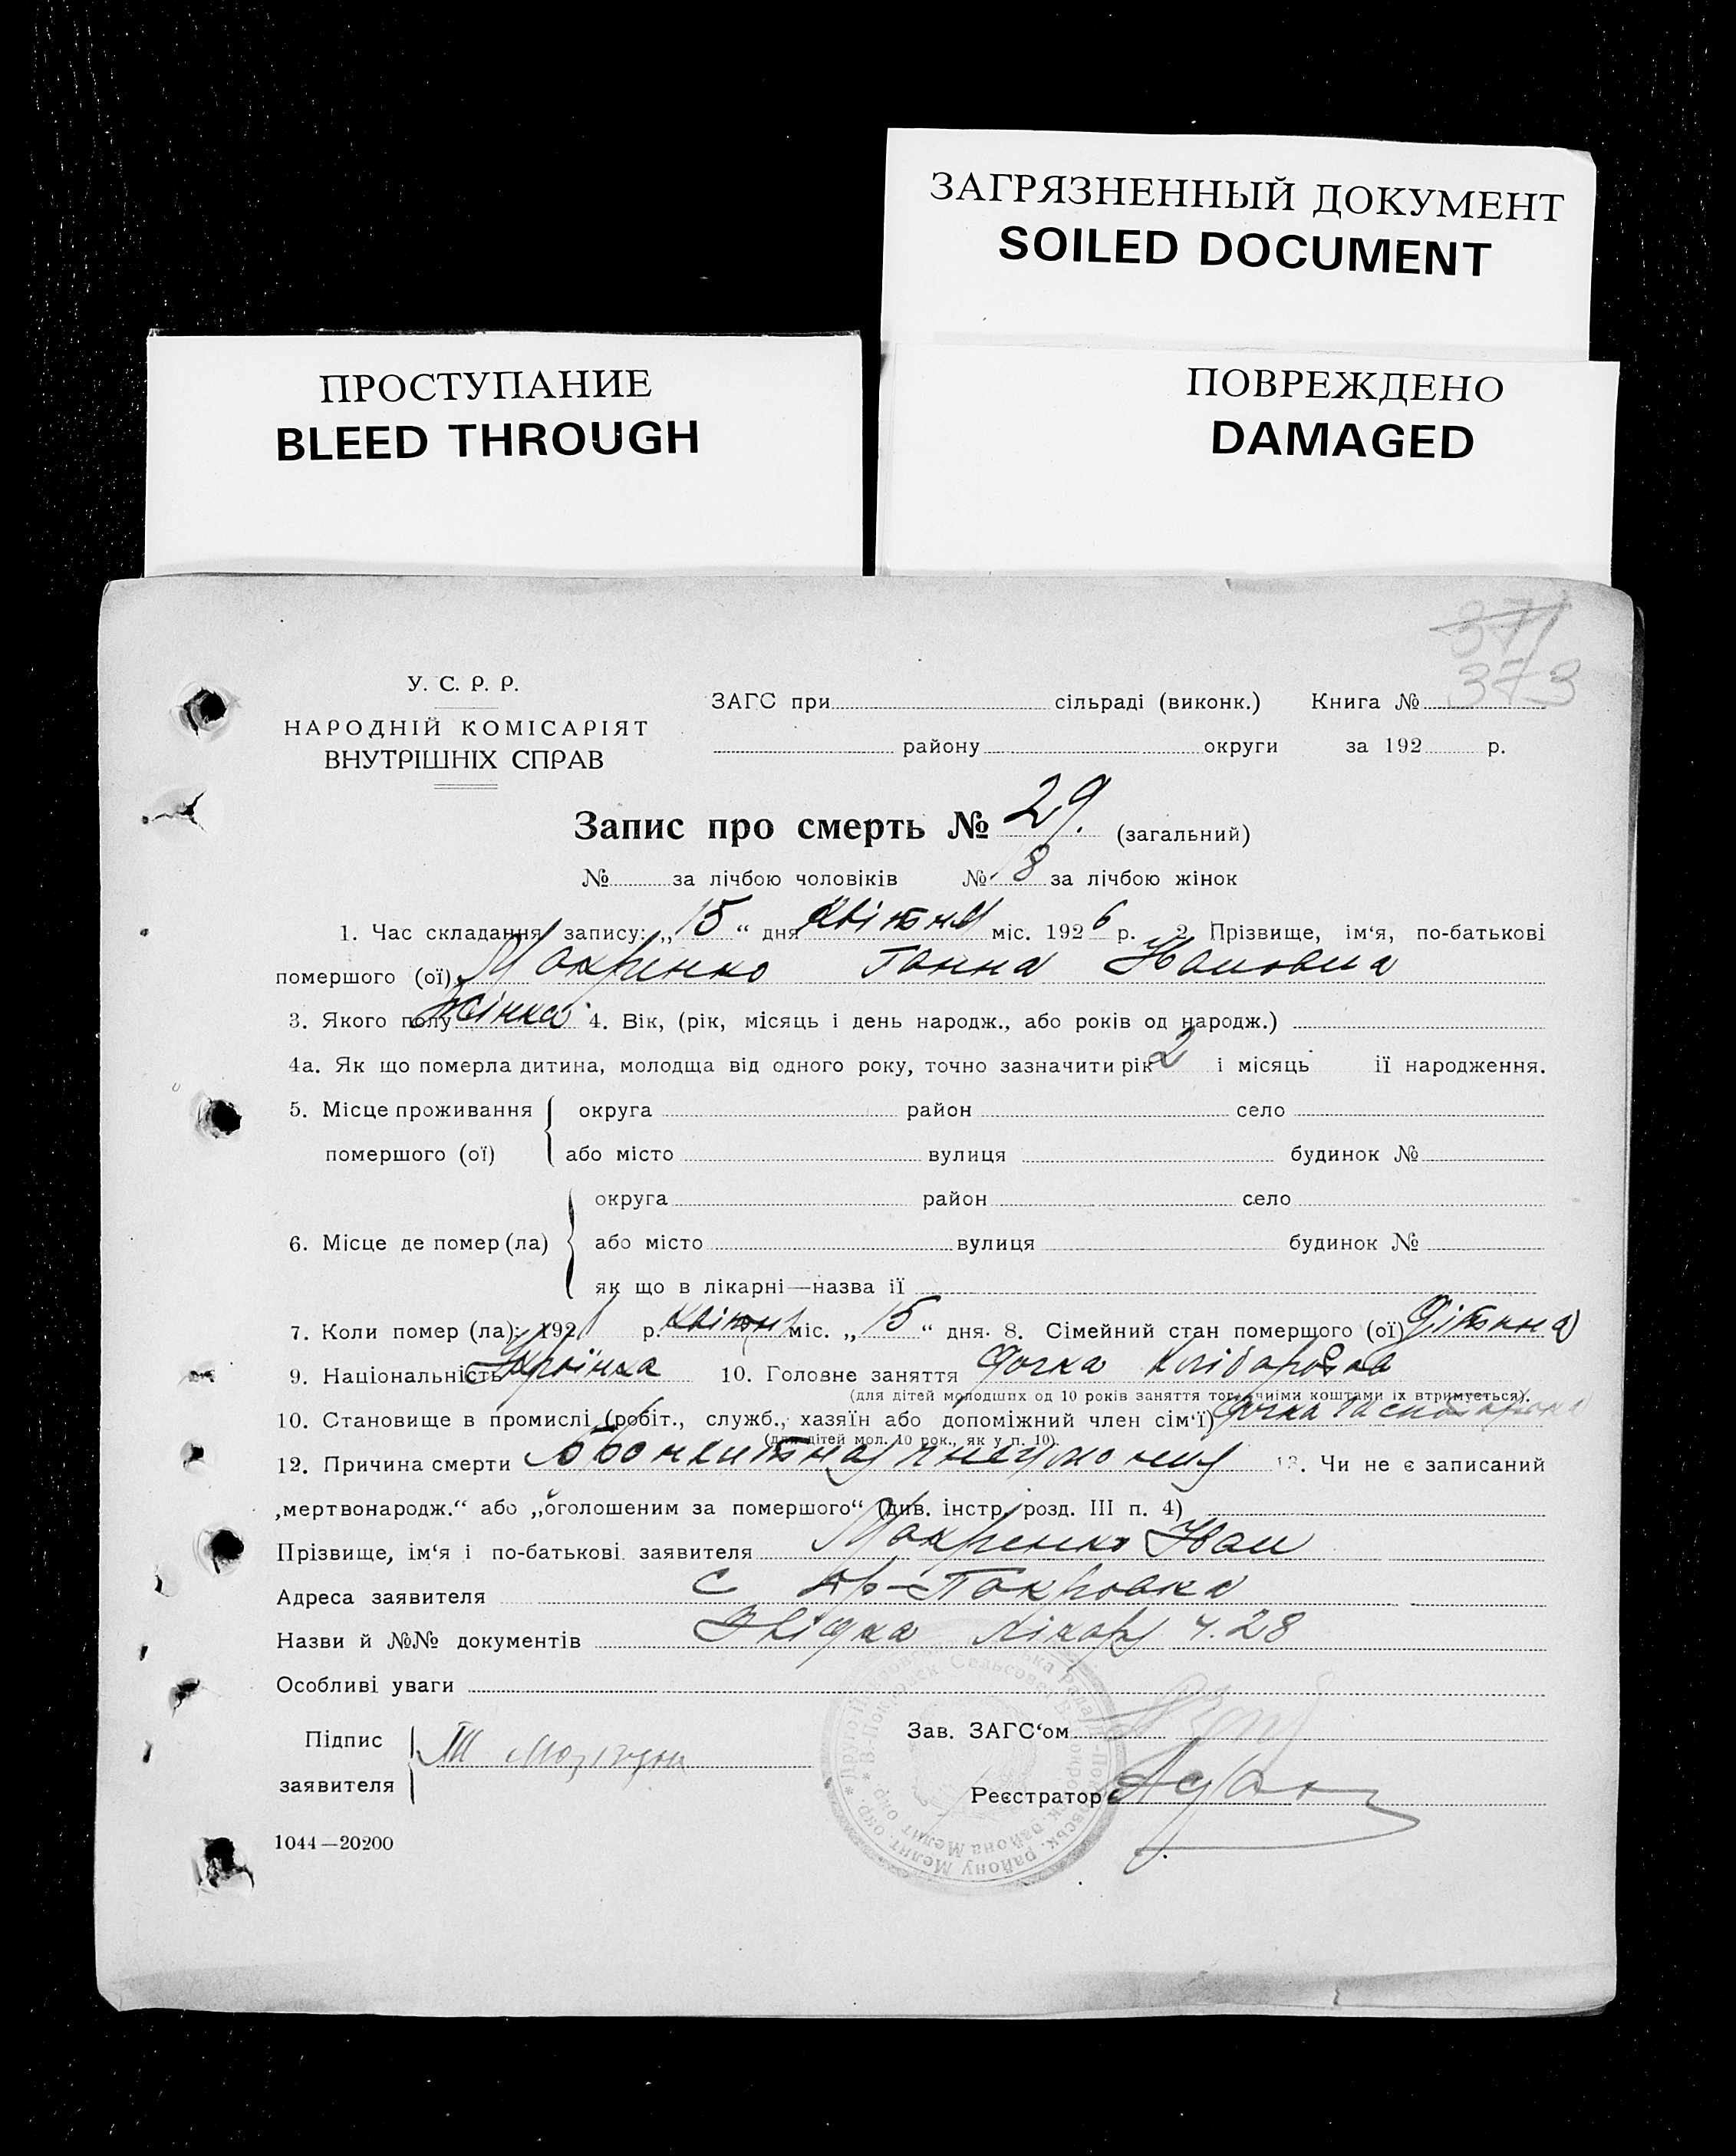 ЗАГРЯЗНЕННЫЙ ДОКУМЕНТ
SOILED DOCUMENT
ПРОСТУПАНИЕ
BLEED THROUGH
ПОВРЕЖДЕНО
DAMAGED
371
373
У. С. Р. Р.
НАРОДНІЙ КОМІСАРІЯТ
ВНУТРІШНІХ СПРАВ
ЗАГС при сільраді (виконк.) Книга №
району округи за 192 р.
Запис про смерть № 29. (загальний)
№ за лічбою чоловіків № 8 за лічбою жінок
1. Час складання запису: „15“ дня Квітня міс. 1926 р. 2. Прізвище, ім‘я, по-батькові
помершого (ої) Макренко Ганна Ивановна
3. Якого полу Жінка 4. Вік, (рік, місяць і день народж., або років од народж.)
4а. Як що померла дитина, молодща від одного року, точно зазначити рік 2 і місяць її народження.
5. Місце проживання округа район село
помершого (ої) або місто вулиця будинок №
округа район село
6. Місце де помер (ла) або місто вулиця будинок №
як що в лікарні—назва її
7. Коли помер (ла): 192 р. Квітня міс. „15“ дня. 8. Сімейний стан помершого (ої) Дітина
9. Національність Украінка 10. Головне заняття Дочка хлібароба
(для дітей молодших од 10 років заняття того, чиїми коштами їх втримується).
10. Становище в промислі (робіт., служб., хазяїн або допоміжний член сім‘ї) Дочка
(для дітей мол. 10 рок., як у п. 10).
12. Причина смерти Бронхитная пневмония 13. Чи не є записаний
„мертвонародж.“ або „оголошеним за помершого“ (див. інстр. розд. III п. 4)
Прізвище, ім‘я і по-батькові заявителя Макренко Иван
Адреса заявителя с Вр-Покровка
Назви й №№ документів Звідка лікаря ч. 28
Особливі уваги
Підпис
заявителя
Зав. ЗАГС‘ом
Реєстратор
1044—20200